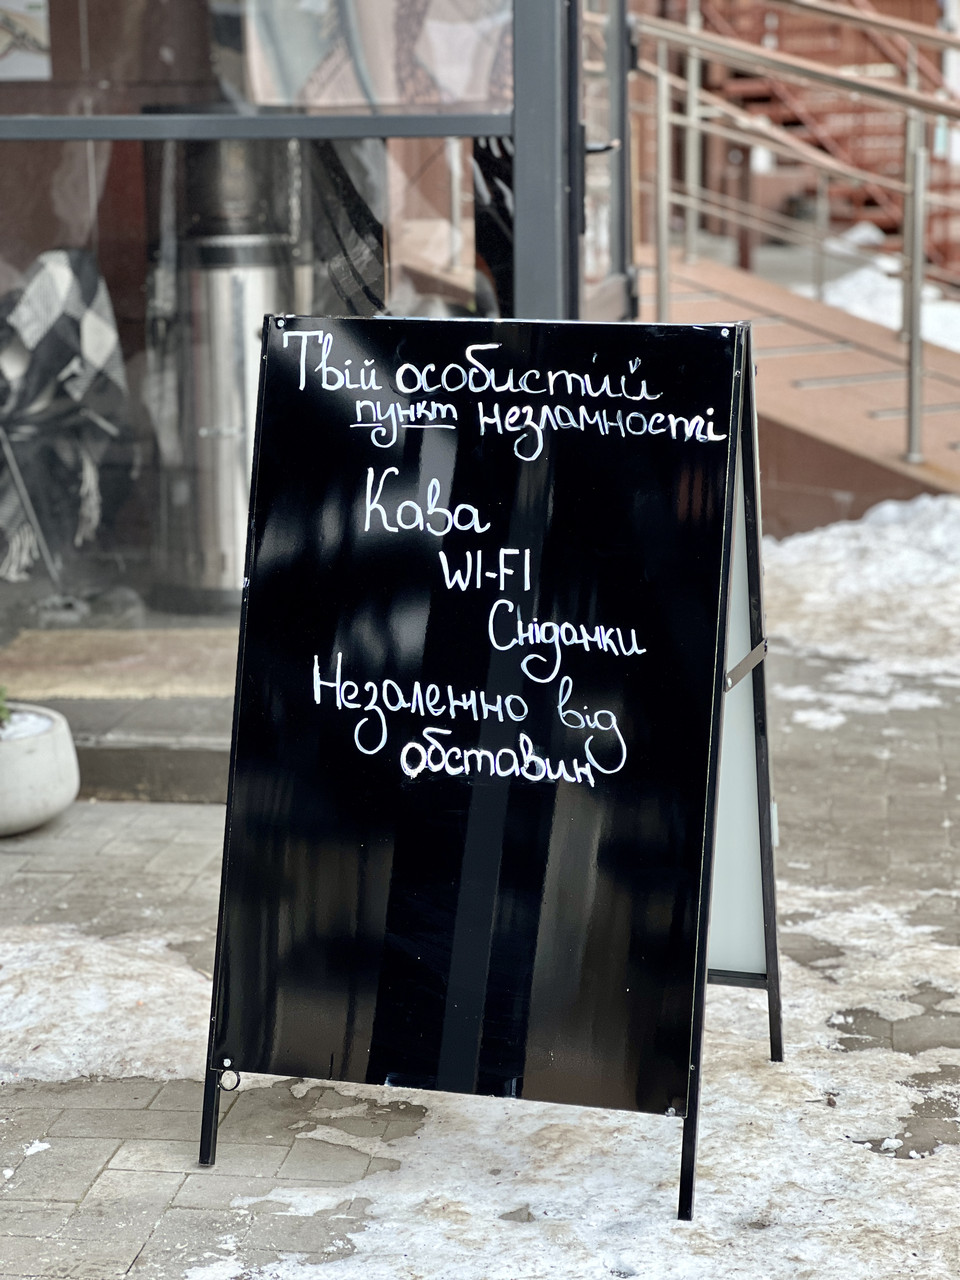 Твій особистий
пункт незламності
Кава
WI-FI
Сніданки
Незалежно від
обставин